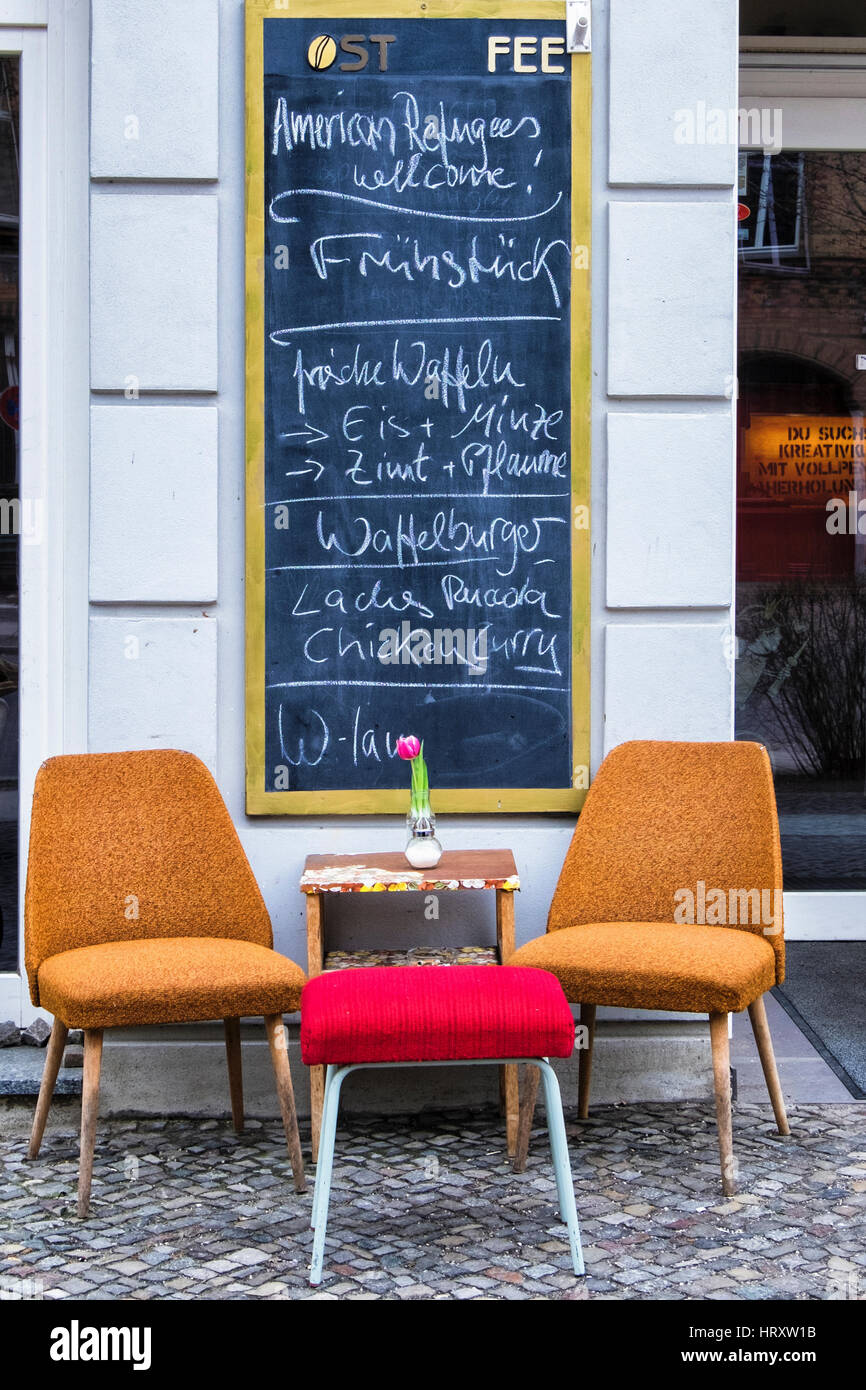 OST FEE
American Refugees
welcome!
Frühstück
frische Waffeln
→ Eis + Minze
→ Zimt + Pflaume
Waffelburger
Lachs Rucola
Chicken Curry
W-lan
DU SUCHS
KREATIVKÖ
MIT VOLLPE
alamy
alamy
Image ID: HRXW1B
www.alamy.com